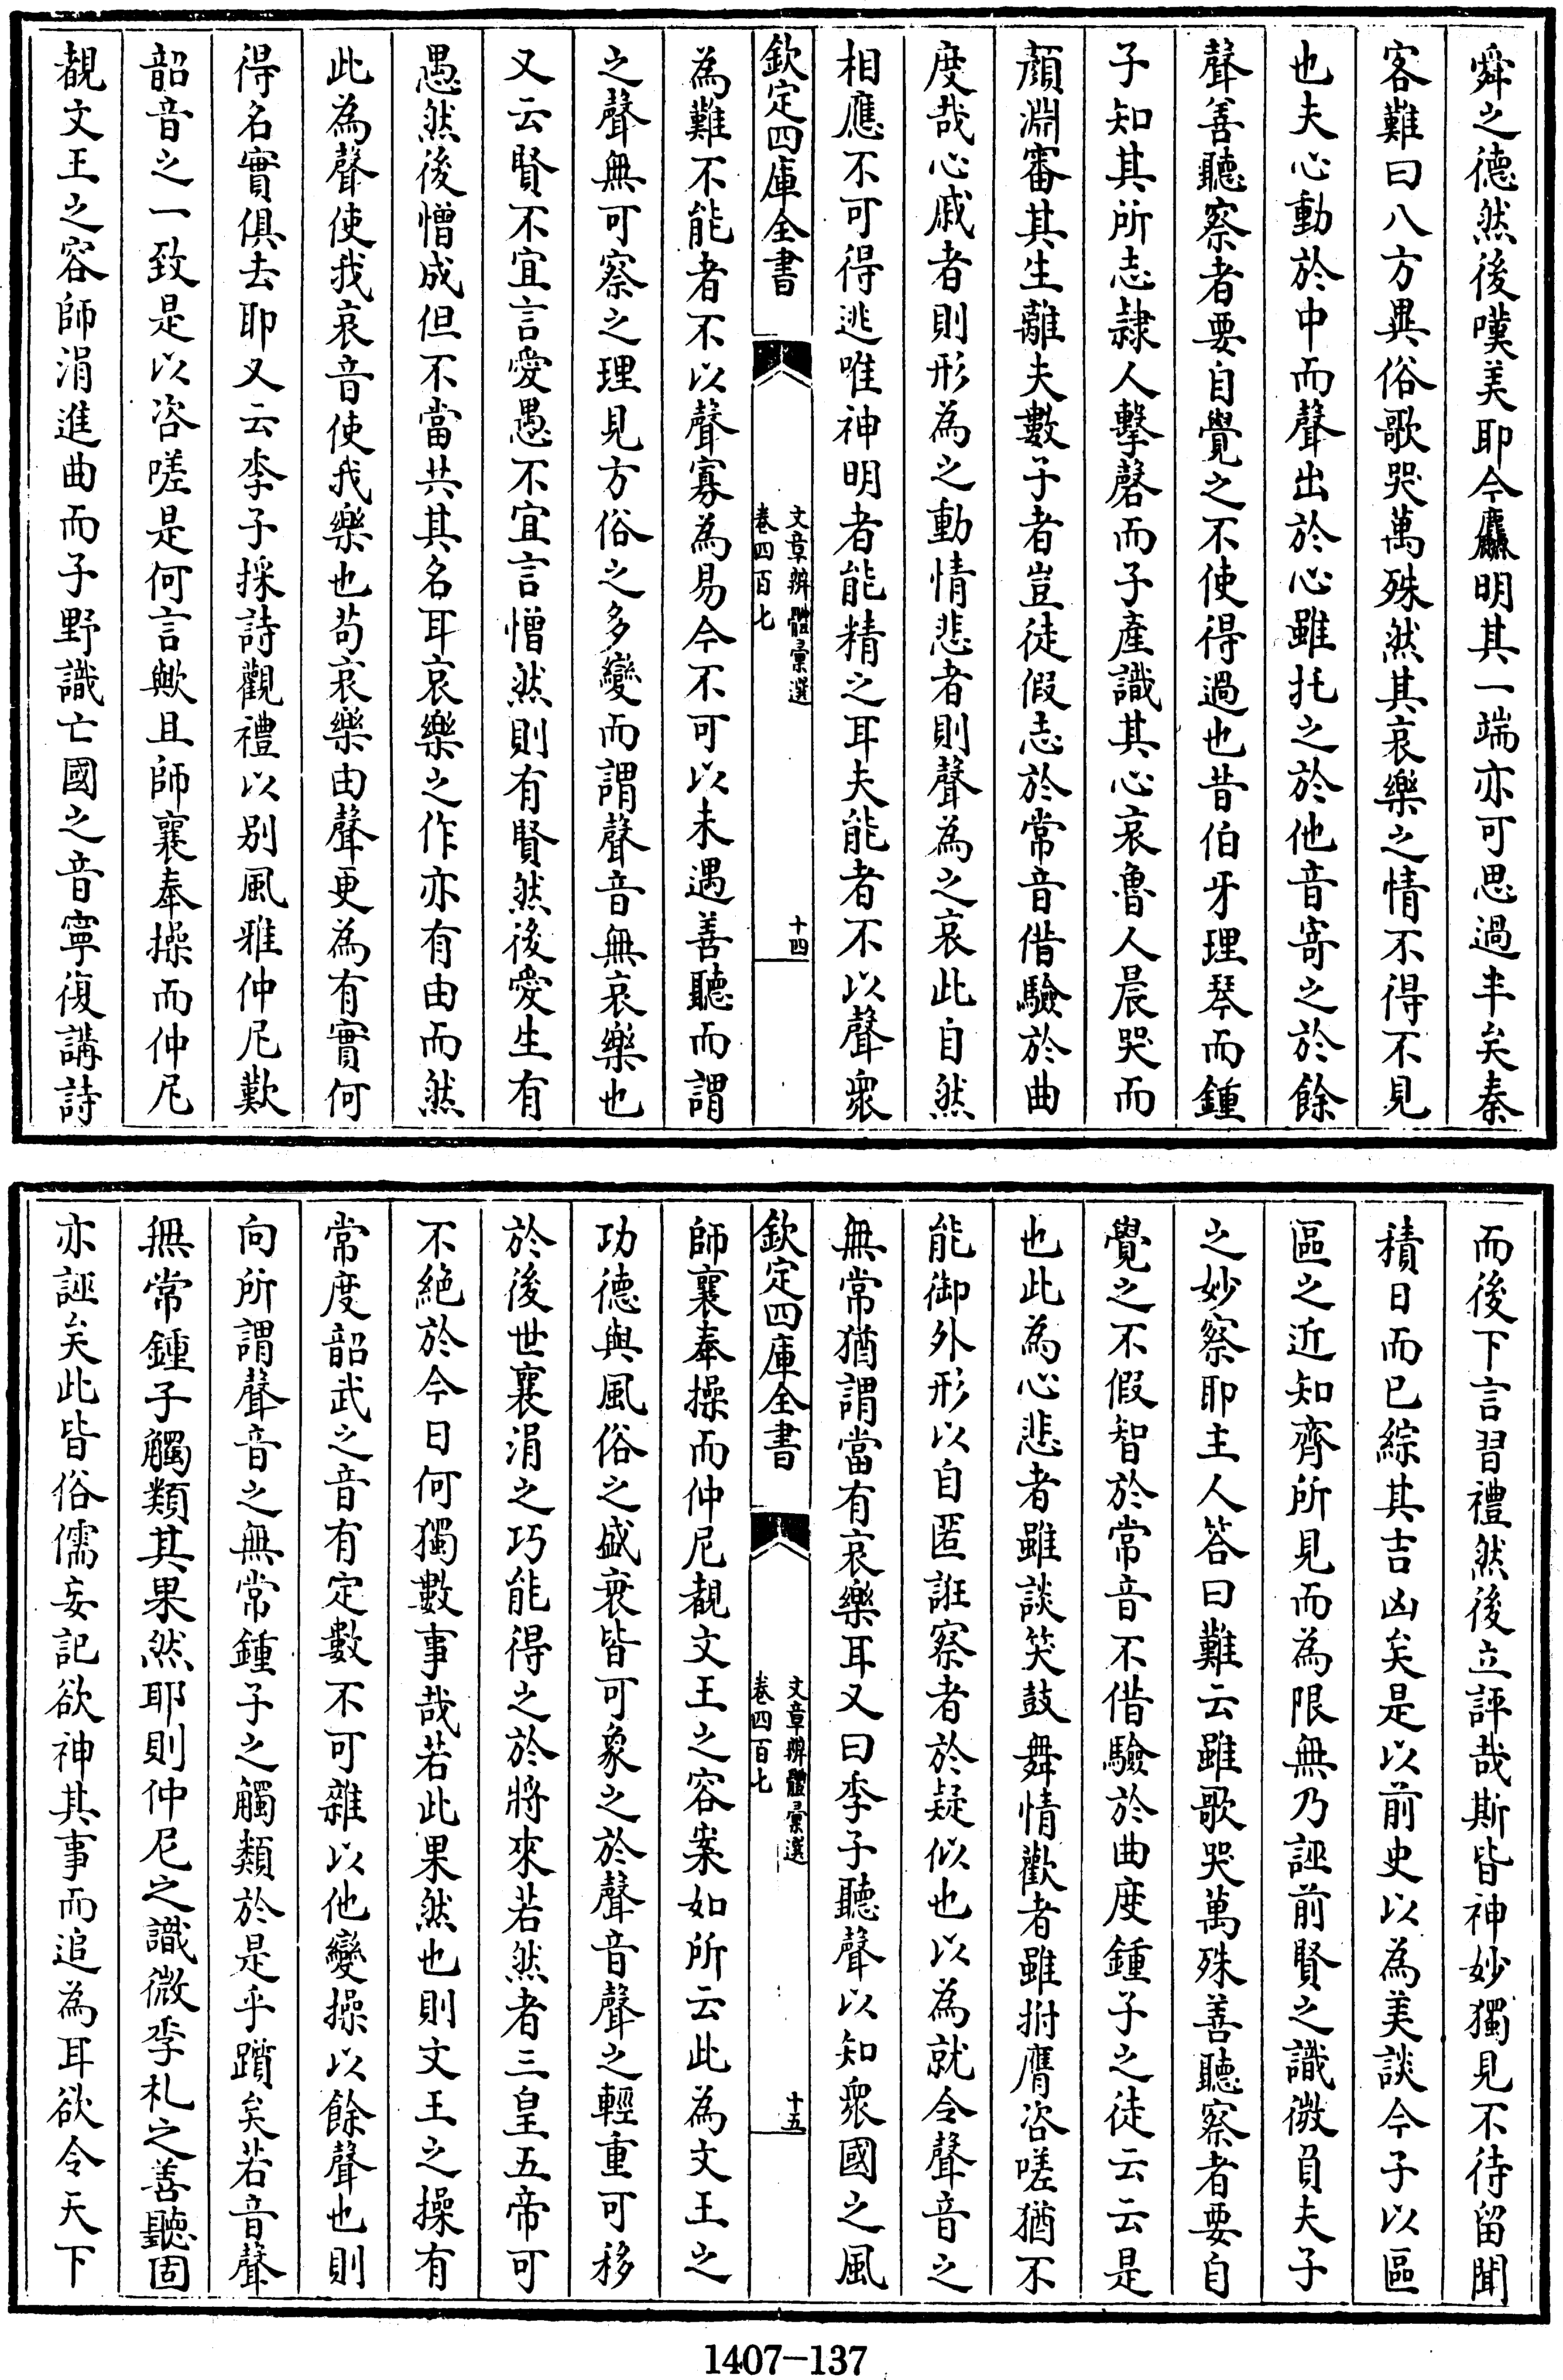 舜之德然後嘆美耶今麤明其一端亦可思過半矣秦
客難曰八方異俗歌哭萬殊然其哀樂之情不得不見
也夫心動於中而聲出於心雖托之於他音寄之於餘
聲善聽察者要自覺之不使得過也昔伯牙理琴而鍾
子知其所志隷人擊磬而子產識其心哀魯人晨哭而
顏淵審其生離夫數子者豈徒假志於常音借驗於曲
度哉心戚者則形為之動情悲者則聲為之哀此自然
相應不可得逃唯神明者能精之耳夫能者不以聲衆
欽定四庫全書
文章辨體彚選
卷四百七
十四
為難不能者不以聲寡為易今不可以未遇善聽而謂
之聲無可察之理見方俗之多變而謂聲音無哀樂也
又云賢不宜言愛愚不宜言憎然則有賢然後愛生有
愚然後憎成但不當共其名耳哀樂之作亦有由而然
此為聲使我哀音使我樂也茍哀樂由聲更為有實何
得名實俱去耶又云季子採詩觀禮以別風雅仲尼歎
韶音之一致是以咨嗟是何言歟且師襄奉操而仲尼
覩文王之容師涓進曲而子野識亡國之音寧復講詩
而後下言習禮然後立評哉斯皆神妙獨見不待留聞
積日而已綜其吉凶矣是以前史以為美談今子以區
區之近知齊所見而為限無乃誣前賢之識微負夫子
之妙察耶主人答曰難云雖歌哭萬殊善聽察者要自
覺之不假智於常音不借驗於曲度鍾子之徒云云是
也此為心悲者雖談笑鼓舞情歡者雖拊膺咨嗟猶不
能御外形以自匿誑察者於疑似也以為就令聲音之
無常猶謂當有哀樂耳又曰季子聽聲以知衆國之風
欽定四庫全書
文章辨體彚選
卷四百七
十五
師襄奉操而仲尼覩文王之容案如所云此為文王之
功德與風俗之盛衰皆可象之於聲音聲之輕重可移
於後世襄涓之巧能得之於將來若然者三皇五帝可
不絕於今日何獨數事哉若此果然也則文王之操有
常度韶武之音有定數不可雜以他變操以餘聲也則
向所謂聲音之無常鍾子之觸類於是乎躓矣若音聲
無常鍾子觸類其果然耶則仲尼之識微季札之善聽固
亦誣矣此皆俗儒妄記欲神其事而追為耳欲令天下
1407-137